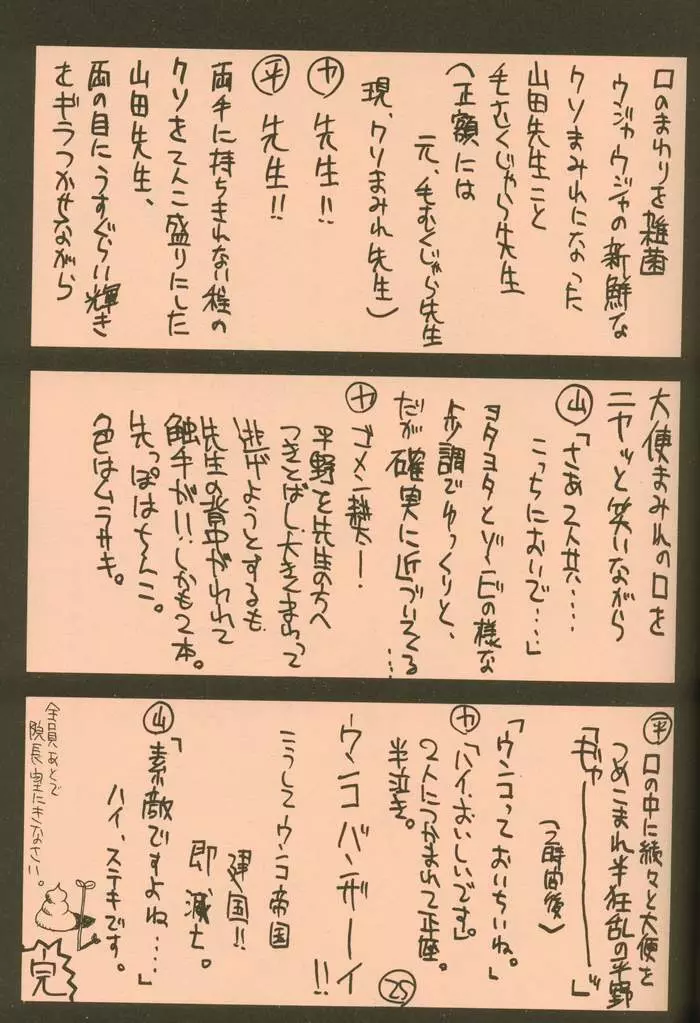 口のまわりを雑菌
ウジャウジャの新鮮な
クソまみれになった
山田先生こと
毛むくじゃら先生
(正額には
元、毛むくじゃら先生
現、クソまみれ先生)
カ 先生!!
平 先生!!
両手に持ちきれない程の
クソをてんこ盛りにした
山田先生、
両の目にうすぐらい輝き
をギラつかせながら
大使まみれの口を
ニヤッと笑いながら
山「さあ2人共‥‥
こっちにおいで‥‥」
ヨタヨタとゾンビの様な
歩調でゆっくりと、
だが確実に近づいてくる…
カ ゴメン越太ー!
平野を先生の方へ
つきとばし大きくまわって
逃げようとするも
先生の背中がわれて
触手が!!しかも2本。
先っぽはちんこ。
色はムラサキ。
平 口の中に続々と大便を
つめこまれ半狂乱の平野
「ギャーーーーー」
(2時間後)
「ウンコっておいちいね。」
カ「ハイ、おいしいです」。
2人につかまれて正座。
半泣き。
ウンコバンザーイ!!
こうしてウンコ帝国
建国!!
即滅亡。
山「素敵ですよね‥‥」
ハイ、ステキです。
全員あとで
院長室にきなさい。
完
25